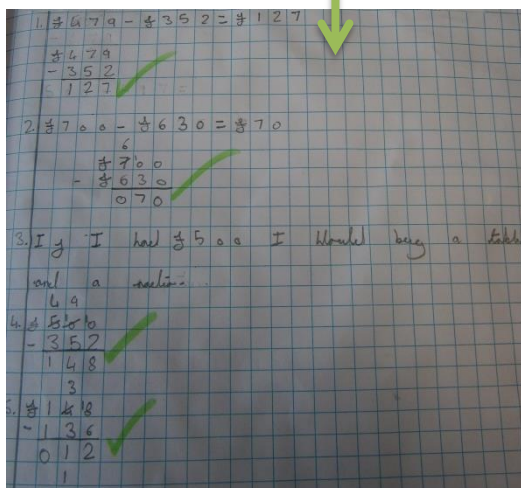 1. £479 - £352 = £127
£479
- 352
127
2. £700 - £630 = £70
6
£7100
- £630
070
3. If I had £500 I would buy a table
and a
4 9
4. £51010
- 352
148
3
5. £1418
- 136
012
1